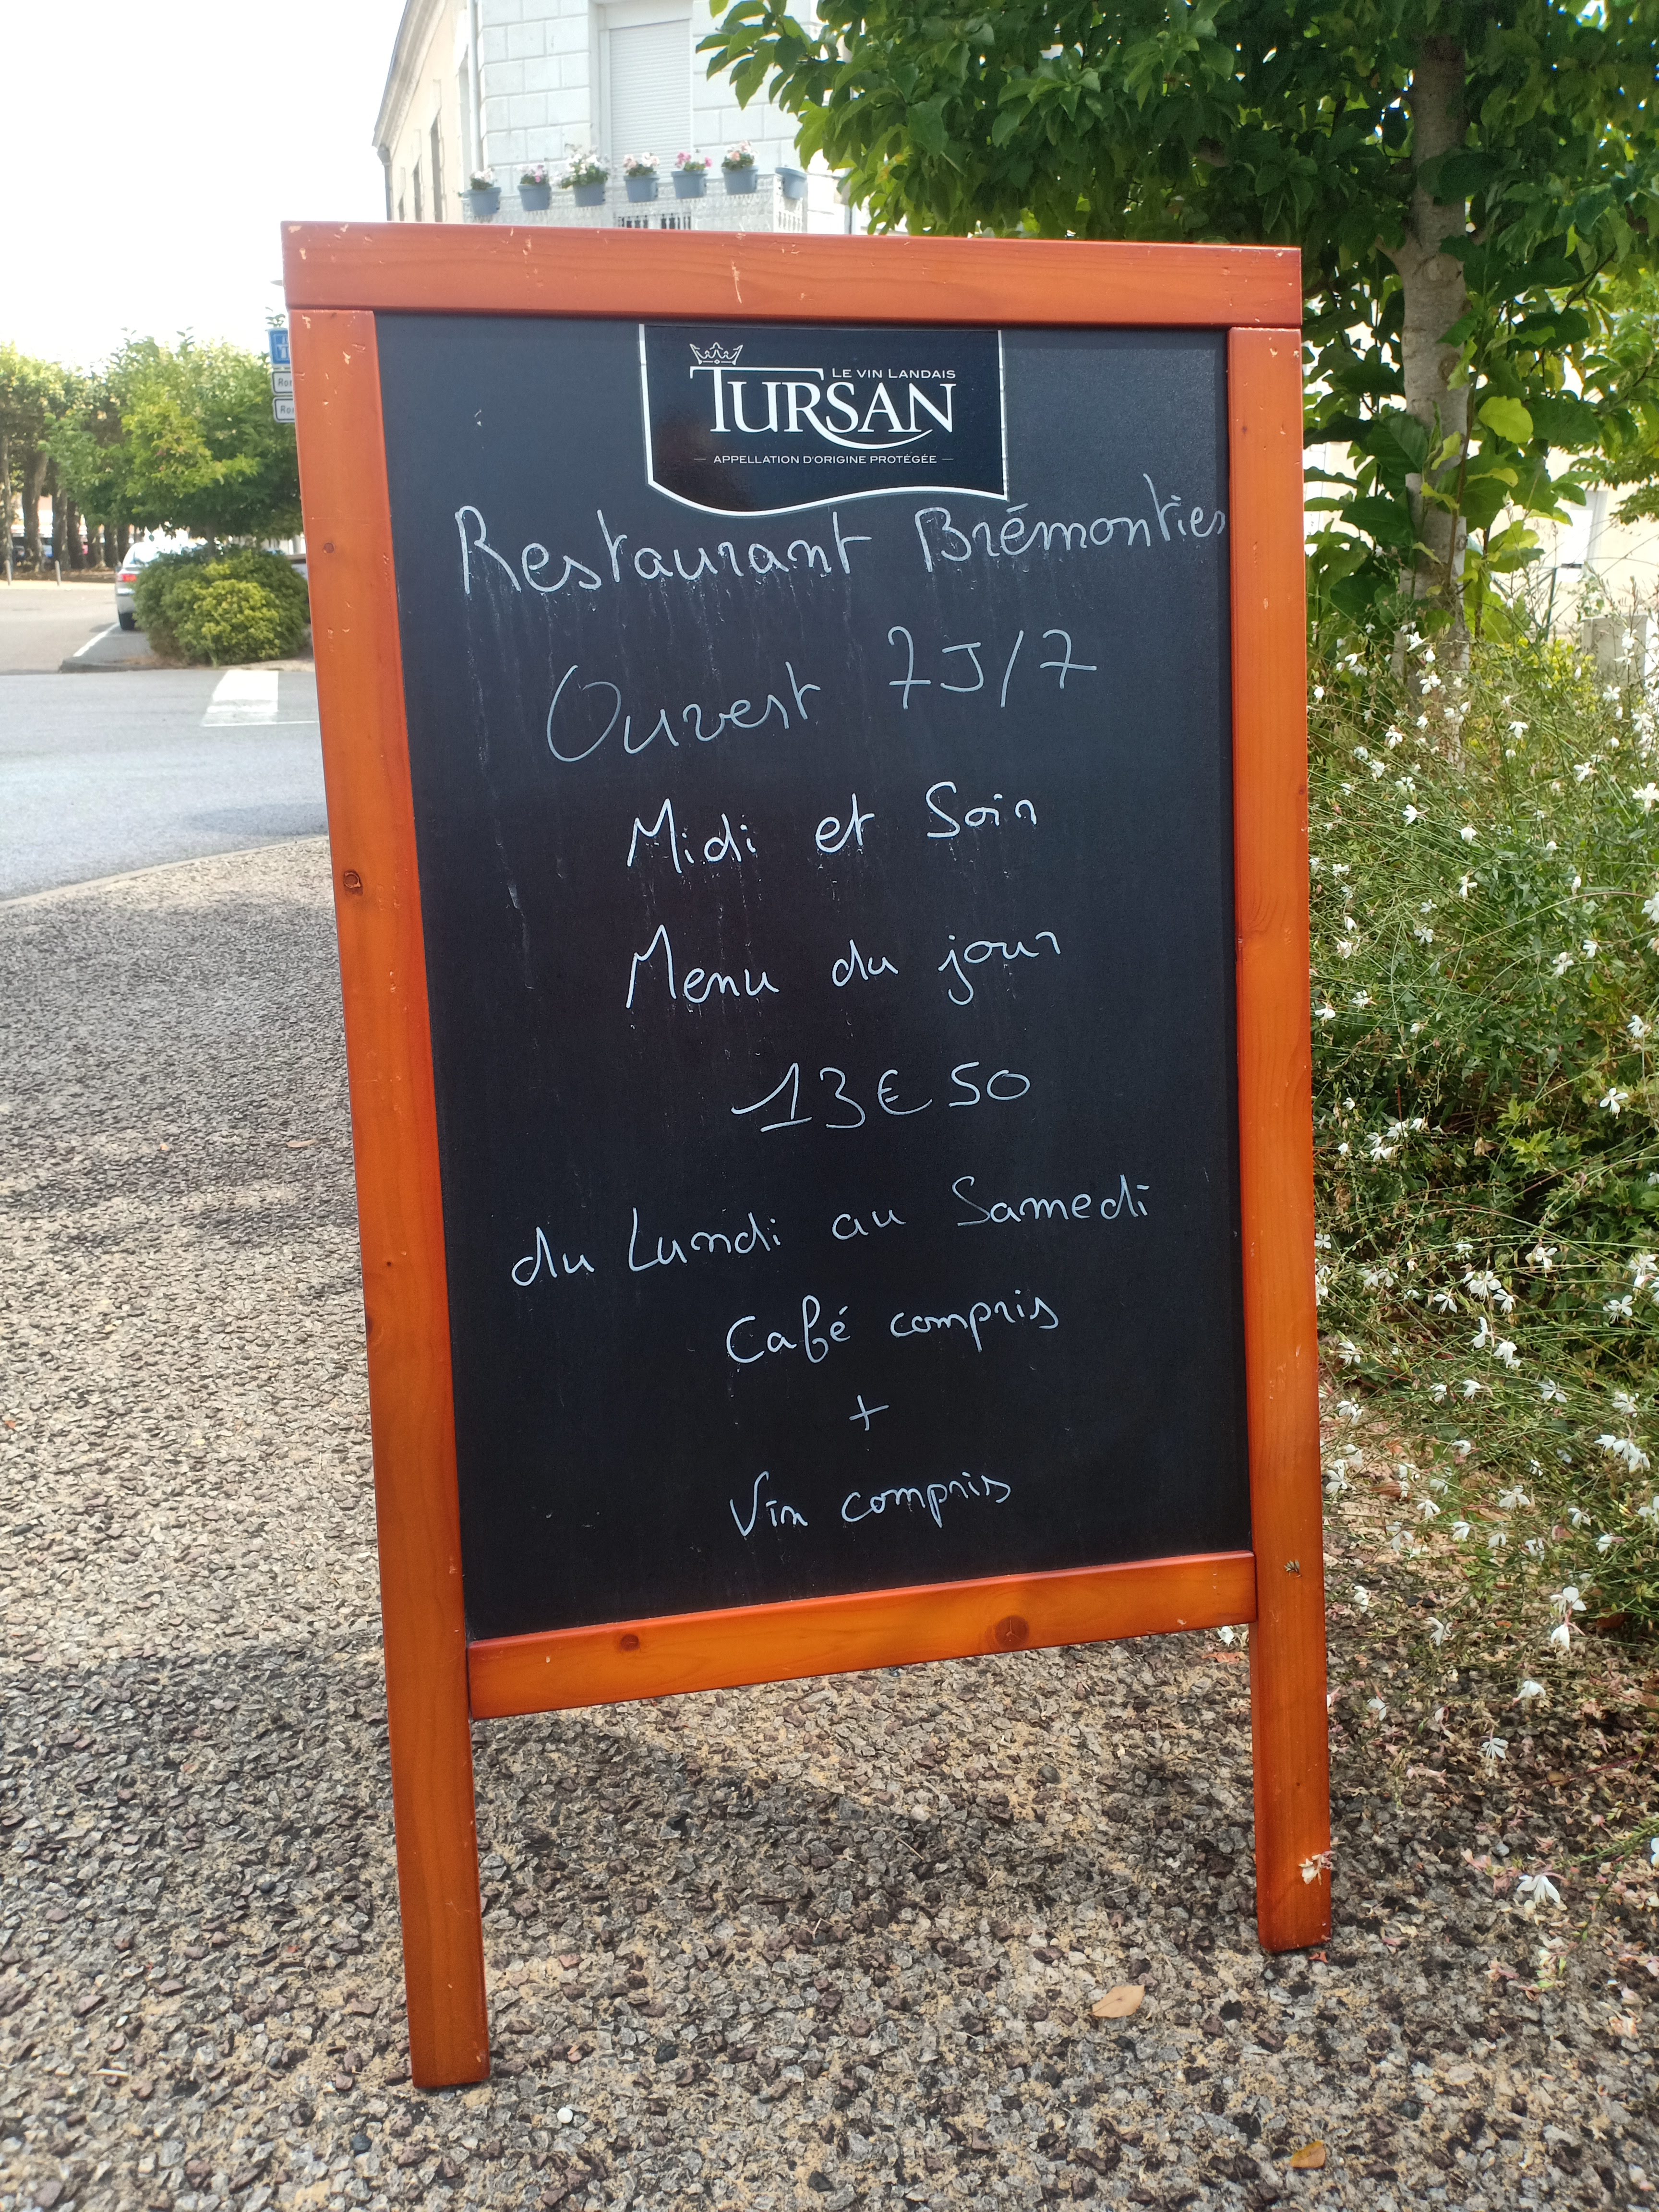 LE VIN LANDAIS
TURSAN
— APPELLATION D'ORIGINE PROTÉGÉE —
Restaurant Brémontier
Ouvert 7J/7
Midi et Soir
Menu du jour
13€50
du Lundi au Samedi
Café compris
+
Vin compris